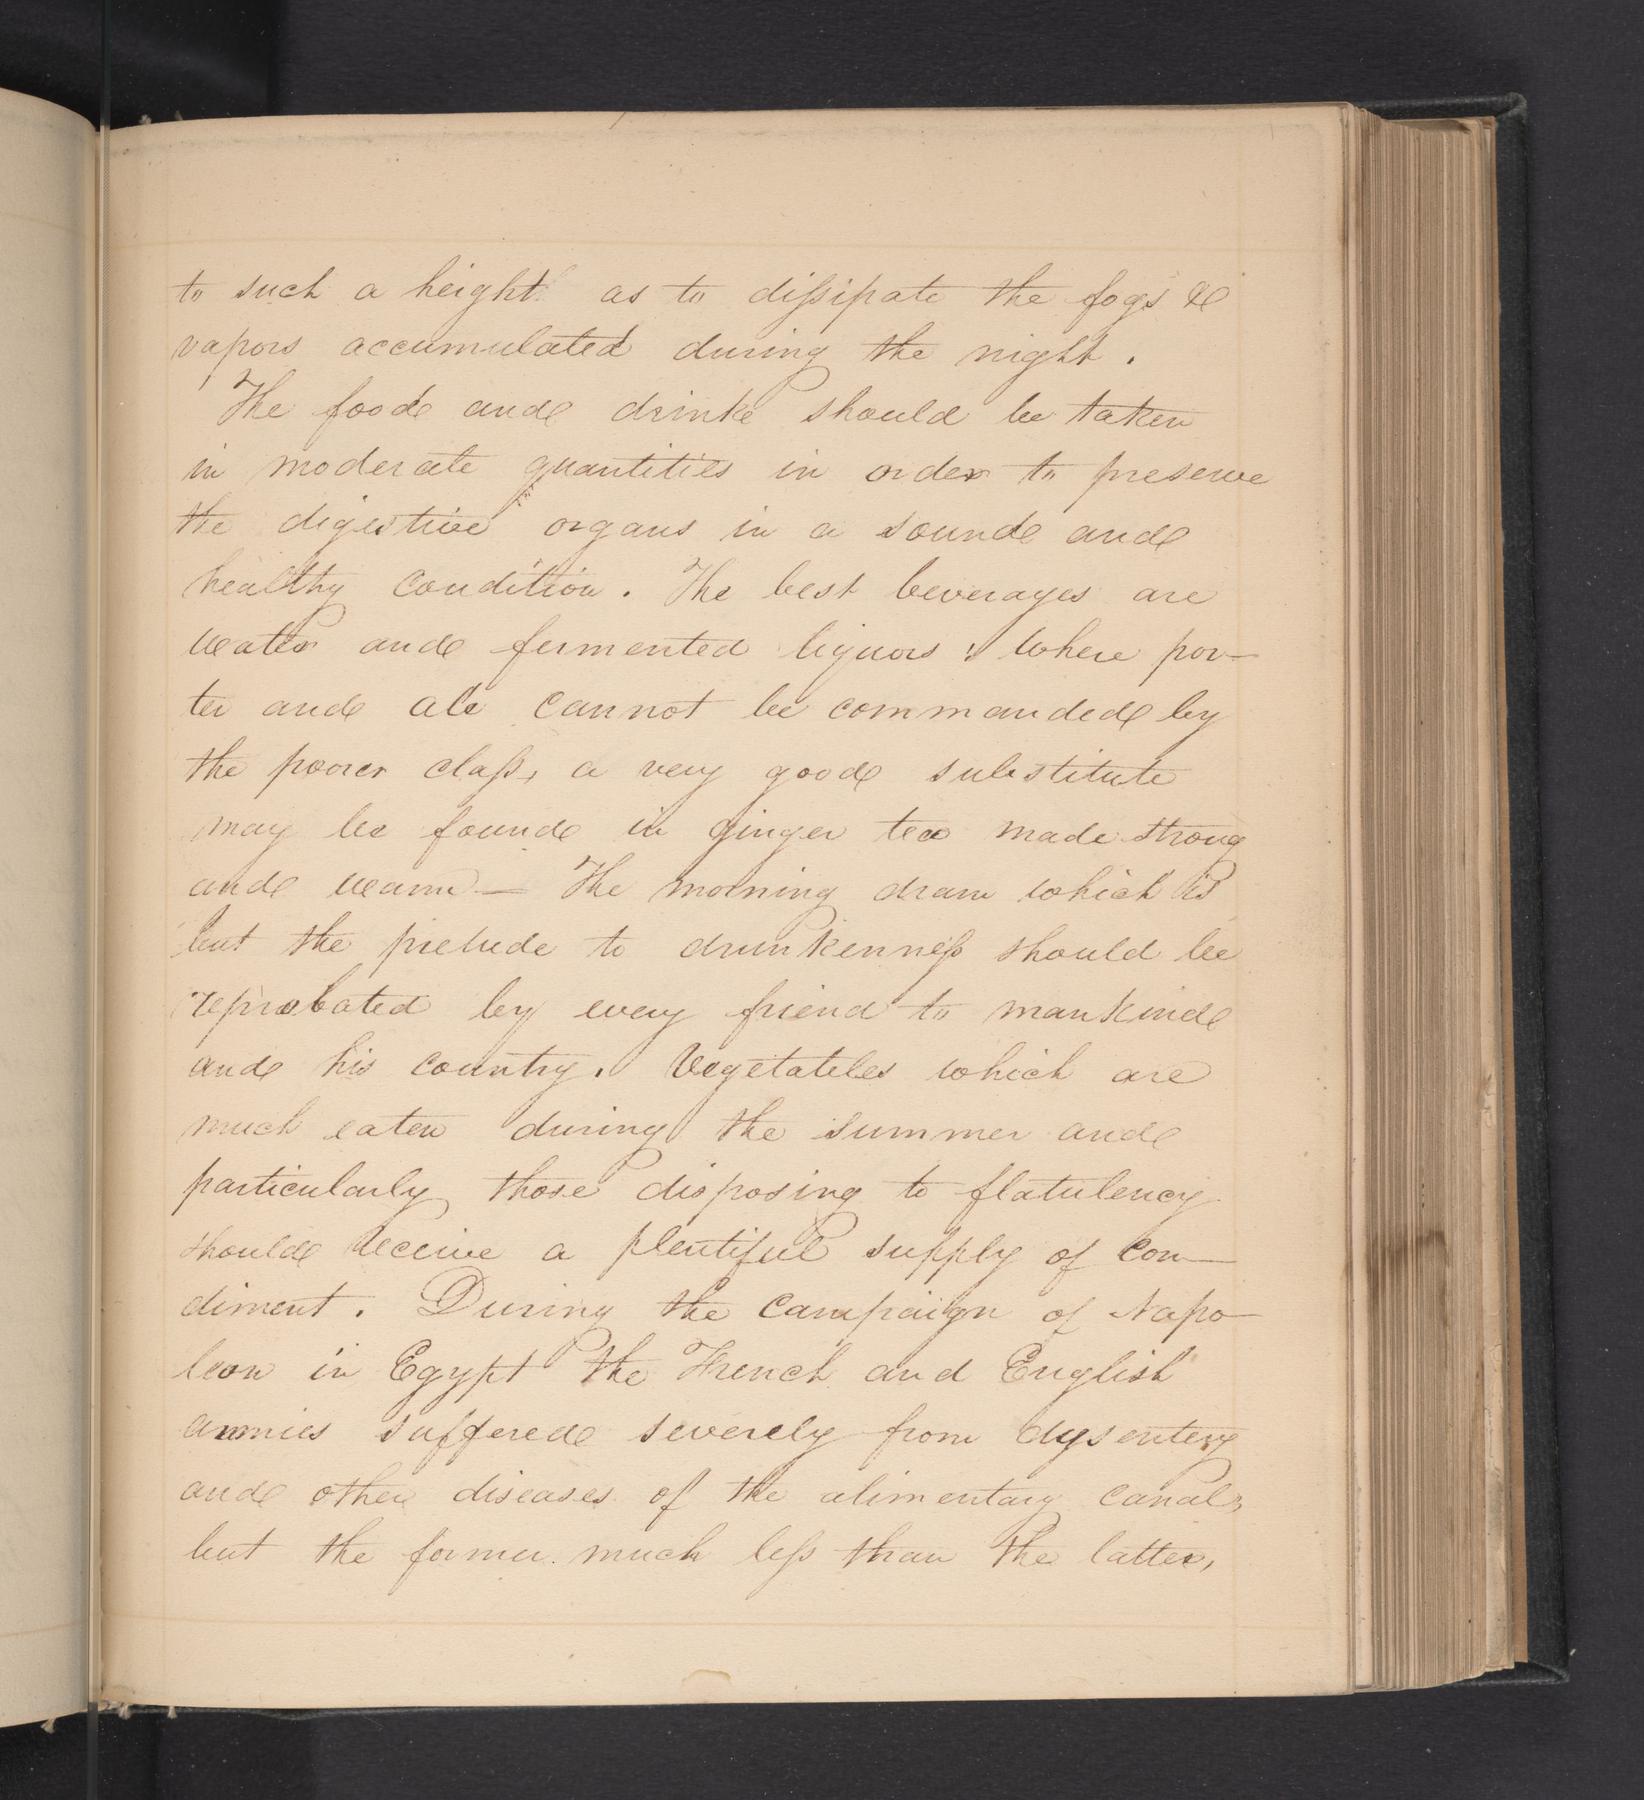 to such a height as to dissipate the fogs &
vapors accumulated during the night.
The food and drink should be taken
in moderate quantities in order to preserve
the digestive organs in a sound and
healthy condition. The best beverages are
water and fermented liquors; where por-
ter and ale cannot be commanded by
the poorer class, a very good substitute
may be found in ginger tea made strong
and warm — The morning dram which is
but the prelude to drunkenness should be
reprobated by every friend to mankind
and his country. Vegetables which are
much eaten during the summer and
particularly those disposing to flatulency
should receive a plentiful supply of con-
diment. During the campaign of Napo-
leon in Egypt the French and English
armies suffered severely from dysentery
and other diseases of the alimentary canal,
but the former much less than the latter,